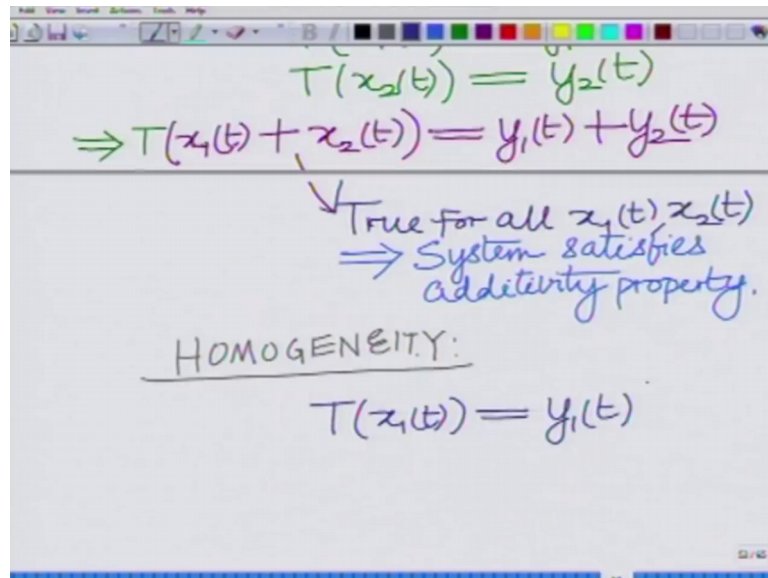 T(x₂(t)) = y₂(t)
⇒ T(x₁(t) + x₂(t)) = y₁(t) + y₂(t)
True for all x₁(t), x₂(t)
⇒ System satisfies
additivity property.
HOMOGENEITY:
T(x₁(t)) = y₁(t)